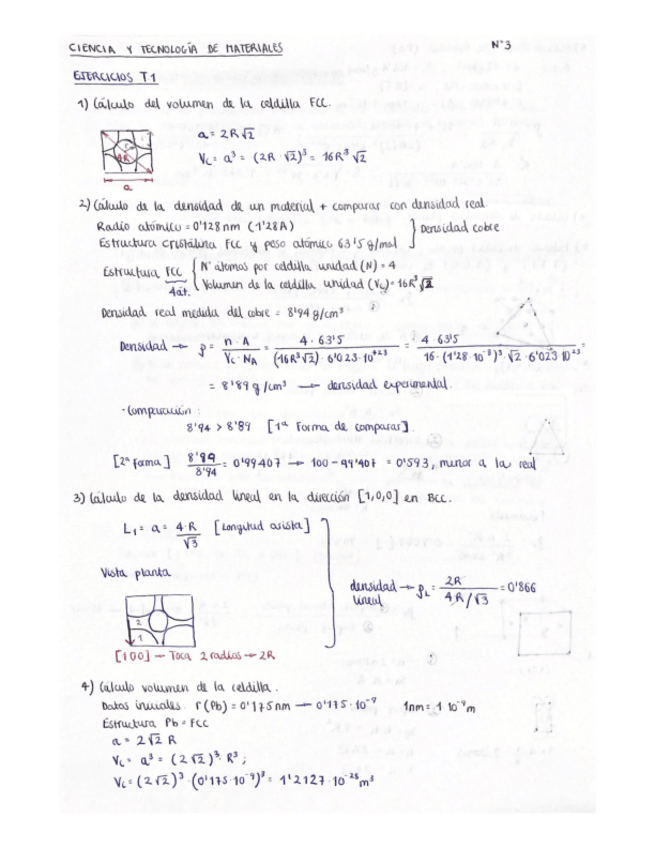 CIENCIA Y TECNOLOGÍA DE MATERIALES N°3
EJERCICIOS T1
1) Cálculo del volumen de la celdilla FCC.
a = 2R√2
Vc = a³ = (2R · √2)³ = 16R³√2
4R
a
2) Cálculo de la densidad de un material + comparar con densidad real.
Radio atómico = 0'128 nm (1'28 A)
Estructura cristalina FCC y peso atómico 63'5 g/mol } Densidad cobre
Estructura FCC { N° átomos por celdilla unidad (N) = 4
4át. Volumen de la celdilla unidad (Vc) = 16R³√2
Densidad real medida del cobre = 8'94 g/cm³
Densidad → ρ = n · A / Vc · NA = 4 · 63'5 / (16R³√2) · 6'023 · 10⁺²³ = 4 · 63'5 / 16 · (1'28 · 10⁻⁸)³ · √2 · 6'023 · 10²³ =
= 8'89 g/cm³ → densidad experimental.
· Comparación :
8'94 > 8'89 [1ª Forma de comparar].
[2ª forma] 8'89 / 8'94 = 0'99407 → 100 - 99'407 = 0'593, menor a la real
3) Cálculo de la densidad lineal en la dirección [1,0,0] en BCC.
L₁ = a = 4·R / √3 [Longitud arista]
Vista planta
densidad lineal → ρL = 2R / 4R/√3 = 0'866
2
1
[100] → Toca 2 radios → 2R
4) Cálculo volumen de la celdilla.
Datos iniciales r(Pb) = 0'175 nm → 0'175 · 10⁻⁹ 1nm = 1 · 10⁻⁹ m
Estructura Pb = FCC
a = 2√2 R
Vc = a³ = (2√2)³ · R³ ;
Vc = (2√2)³ · (0'175 · 10⁻⁹)³ = 1'2127 · 10⁻²⁸ m³